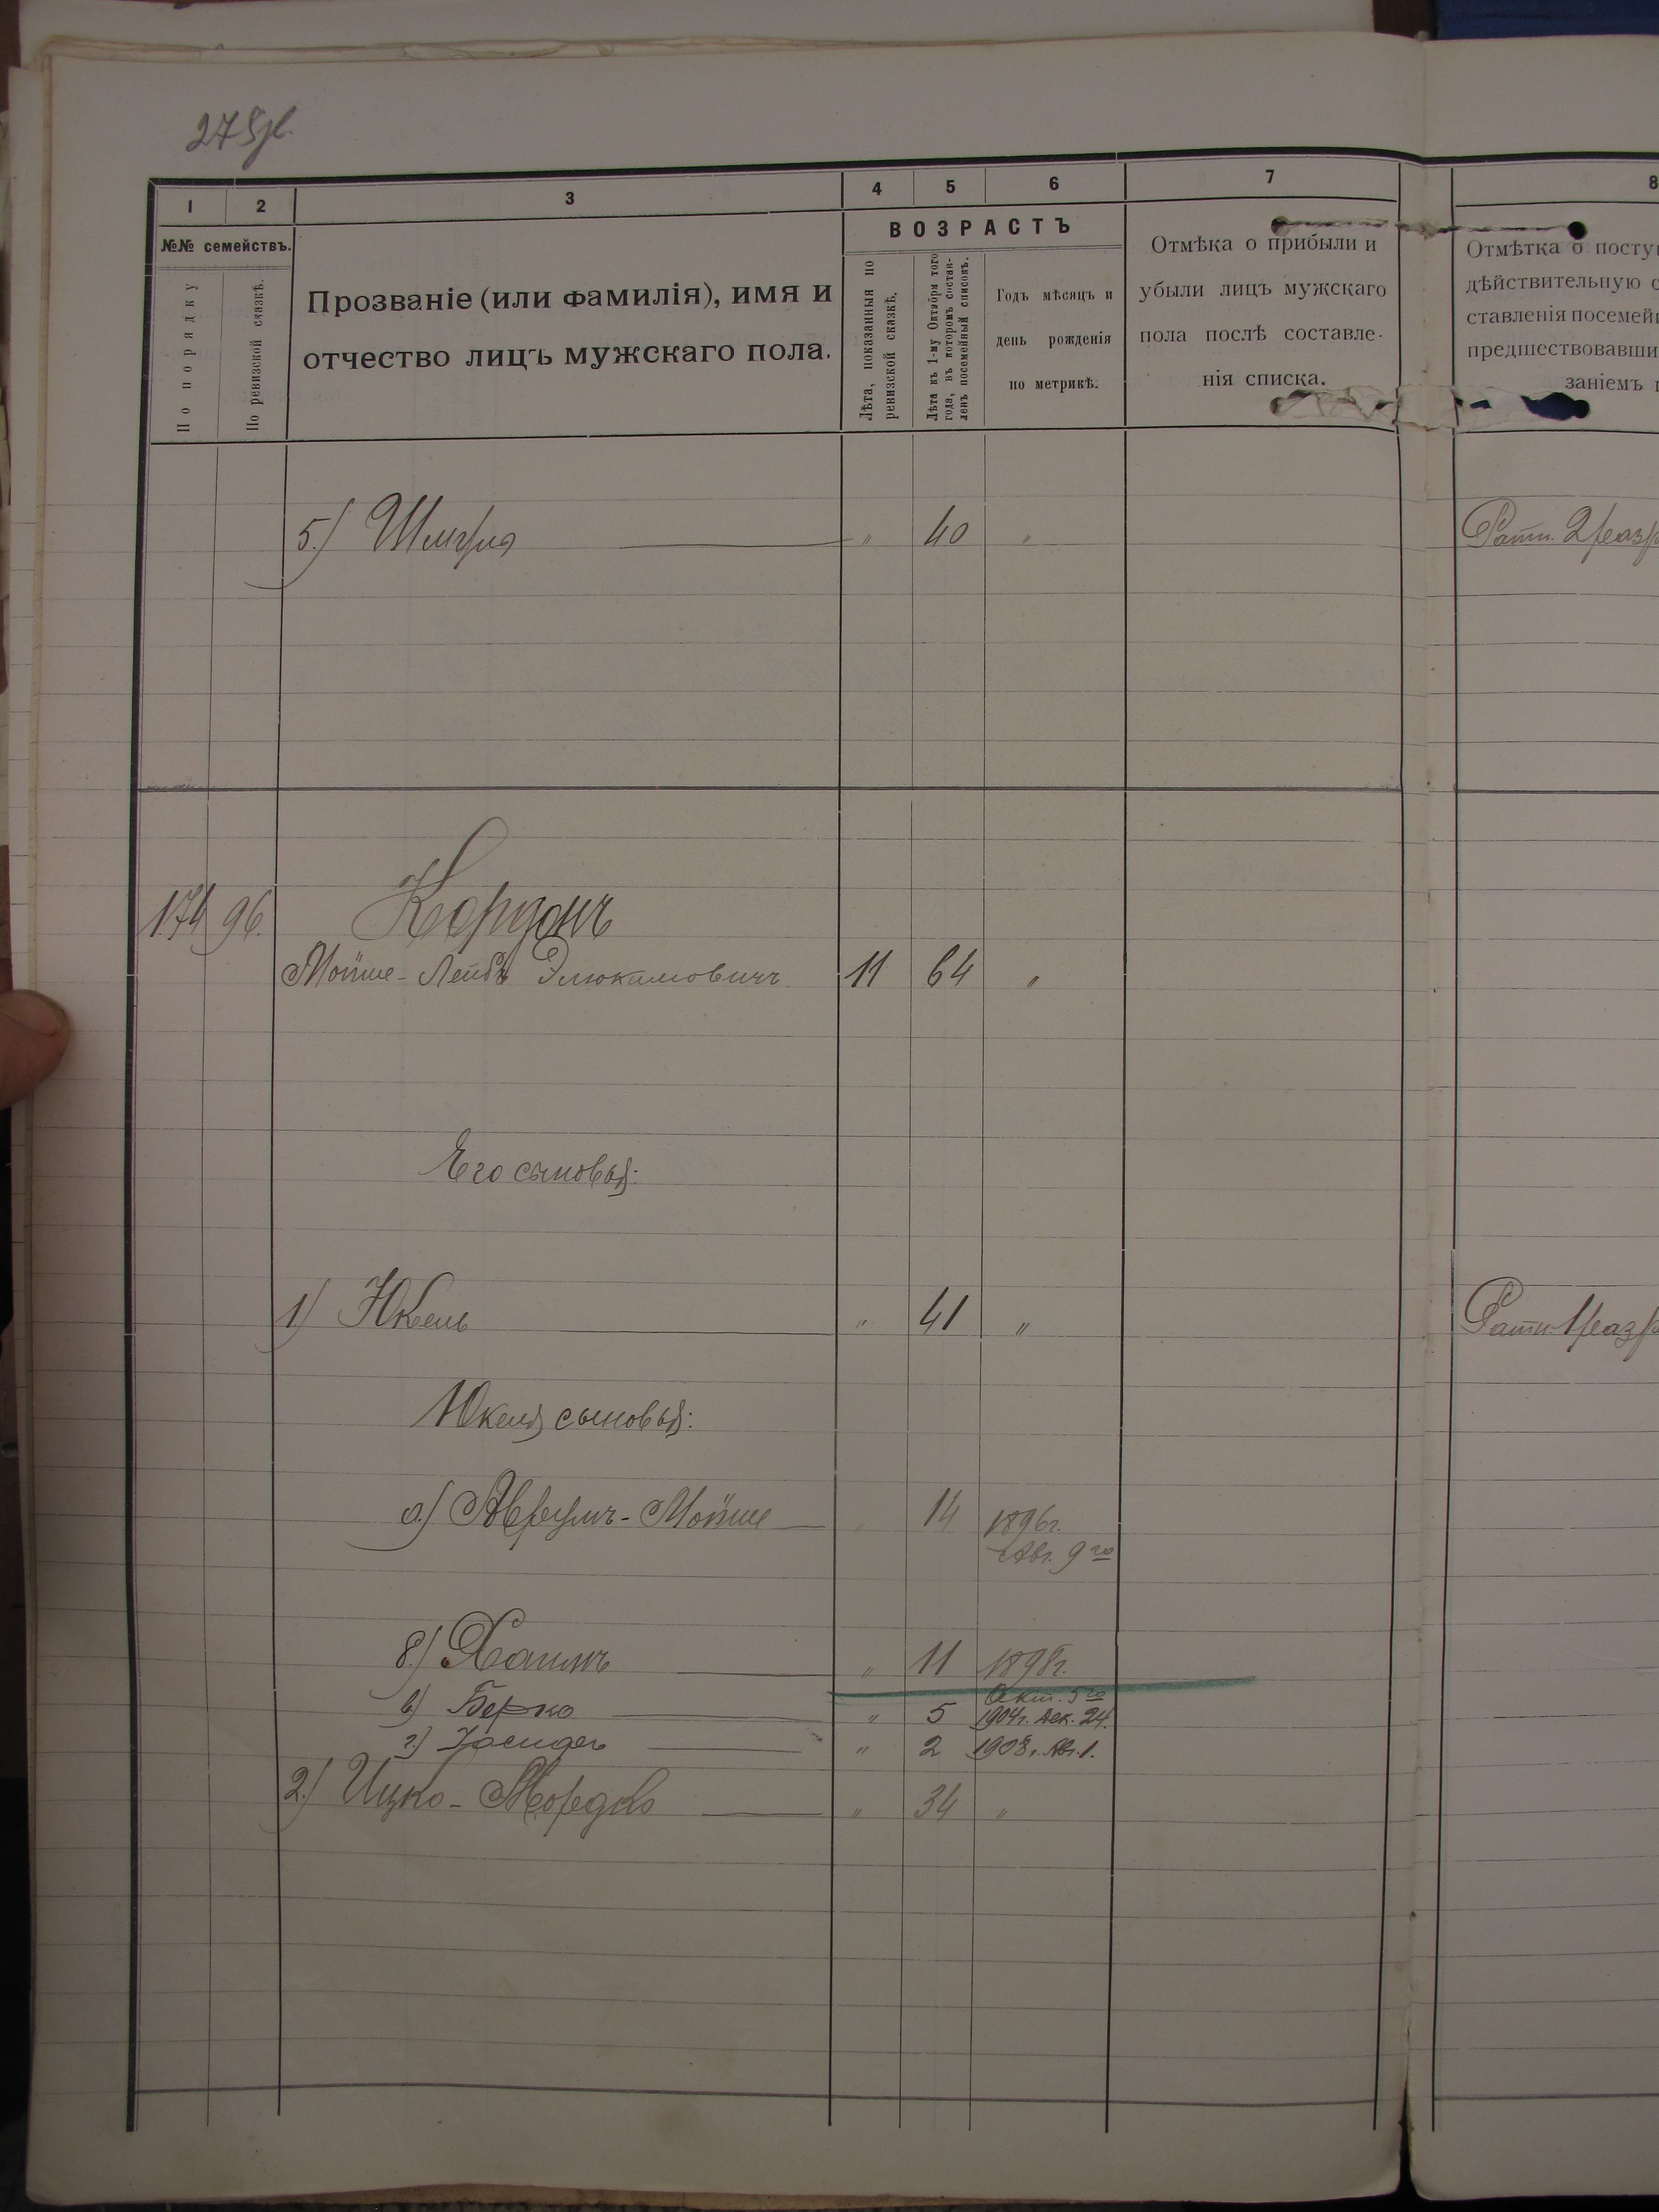 275об.
1 2 3 4 5 6 7 8
№№ семействъ.
По порядку
По ревизской сказкѣ.
Прозваніе (или фамилія), имя и
отчество лицъ мужскаго пола.
ВОЗРАСТЪ
Лѣта, показанныя по
ревизской сказкѣ.
Лѣта къ 1-му Октября того
года, въ которомъ состав-
ленъ посемейный списокъ.
Годъ мѣсяцъ и
день рожденія
по метрикѣ.
Отмѣка о прибыли и
убыли лицъ мужскаго
пола послѣ составле-
нія списка.
Отмѣтка о посту
дѣйствительную с
ставленія посемей
предшествовавши
заніемъ
5.) Шмуля " 40 " Ратн. 2 разр
174 96. Кордонъ
Мойше-Лейбъ Элюкимовичъ 11 64 "
Его сыновья:
1) Юкель " 41 " Ратн. 1 разр
Юкеля сыновья:
а.) Аврумъ-Мойше " 14 1896г.
Авг. 9го
б.) Хаимъ " 11 1898г.
Окт. 5го
в) Берко " 5 1904г. Дек. 24.
г.) " 2 1908г. Авг. 1.
2.) Ицко-Мордко " 34 "